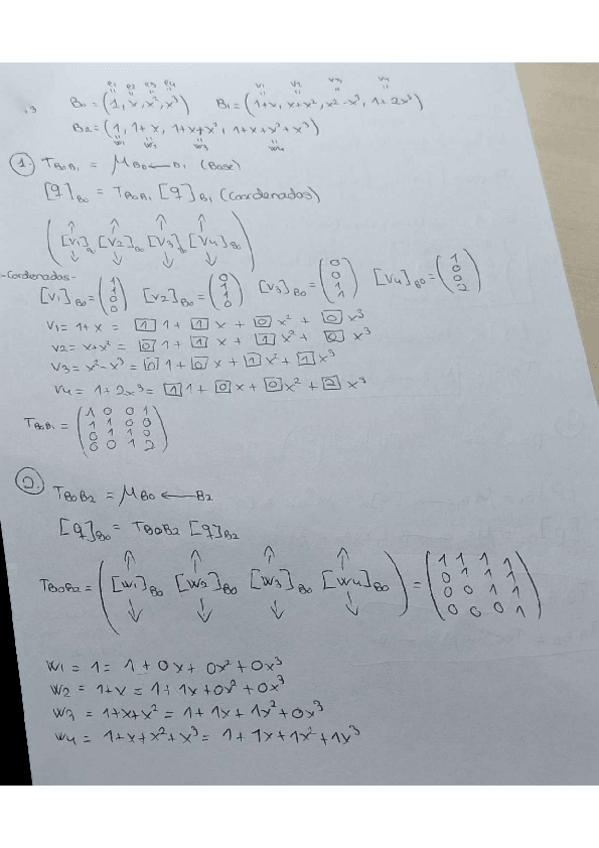 e1 e2 e3 e4 v1 v2 v3 v4
.3 B0 = (1, x, x², x³) B1 = (1+x, x+x², x²-x³, 1+2x³)
B2 = (1, 1+x, 1+x+x², 1+x+x²+x³)
w1 w2 w3 w4
1. TB0B1 = MB0 ← B1 (Base)
[q]B0 = TB0B1 [q]B1 (Coordenadas)
([v1]B0 [v2]B0 [v3]B0 [v4]B0)
-Cordenadas-
[v1]B0 = (1 1 0 0) [v2]B0 = (0 1 1 0) [v3]B0 = (0 0 1 1) [v4]B0 = (1 0 0 2)
v1 = 1+x = 1 1 + 1 x + 0 x² + 0 x³
v2 = x+x² = 0 1 + 1 x + 1 x² + 0 x³
v3 = x²-x³ = 0 1 + 0 x + 1 x² + 1 x³
v4 = 1+2x³ = 1 1 + 0 x + 0 x² + 2 x³
TB0B1 = (1 0 0 1
1 1 0 0
0 1 1 0
0 0 1 2)
2. TB0B2 = MB0 ← B2
[q]B0 = TB0B2 [q]B2
TB0B2 = ([w1]B0 [w2]B0 [w3]B0 [w4]B0) = (1 1 1 1
0 1 1 1
0 0 1 1
0 0 0 1)
w1 = 1 = 1 + 0x + 0x² + 0x³
w2 = 1+x = 1 + 1x + 0x² + 0x³
w3 = 1+x+x² = 1 + 1x + 1x² + 0x³
w4 = 1+x+x²+x³ = 1 + 1x + 1x² + 1x³